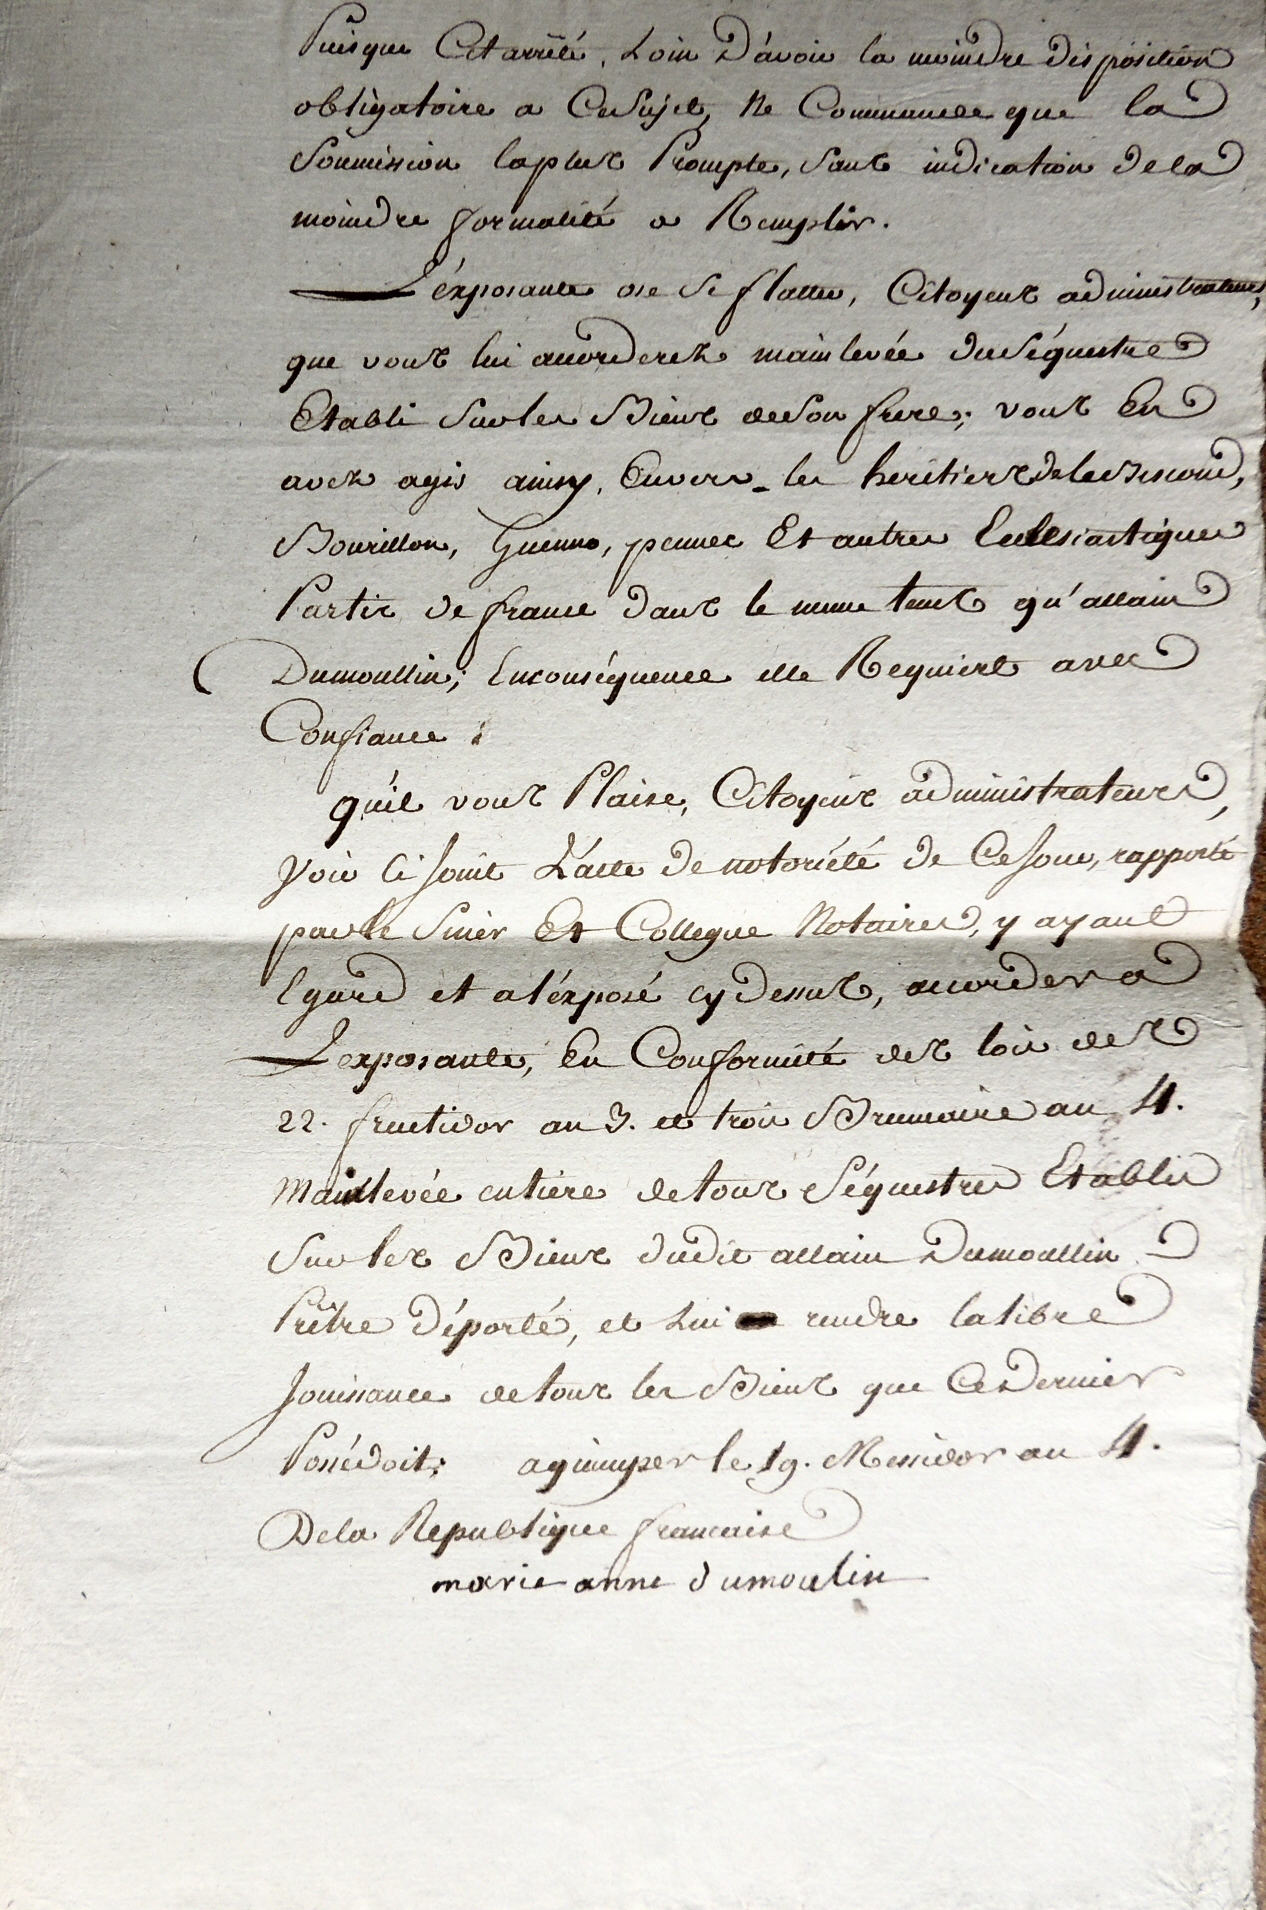 Puisque Cet arrêté, Loin D'avoir la moindre disposition
obligatoire a Ce Sujet, Ne Commande que la
Soumission la plus Prompte, sans indication de la
moindre formalité a Remplir.
L'éxposante ose Se flatter, Citoyens administrateurs,
que vous lui accorderez main levée du Séquestre
Etabli Sur les Biens de Son frere; vous En
avez agis ainsy, Envers les heritiers de le Bescond,
Bourillon, Guenno, pennec Et autres Ecclesiastiques
Partis de france dans le meme tems qu'allain
Dumoullin; Enconséquence elle Requiert avec
Confiance :
qu'il vous Plaise, Citoyens administrateurs,
Voir Ci Joint L'acte de notoriété de Ce Jour, rapporté
par le Sinér Et Collegue Notaires, y ayant
Egard et a l'éxposé cy Dessus, accorder a
L'exposante, En Conformité des lois des
22. fructidor an 3. et trois Brumaire an 4.
Mainlevée entiere de tous Séquestres Etablis
Sur les Biens dudit allain Dumoullin
Prêtre Déporté, et Lui rendre la libre
Jouissance de tous les Biens que Ce Dernier
Possédoit; a quimper le 19. Messidor an 4.
De la Republique francaise
marie anne dumoulin